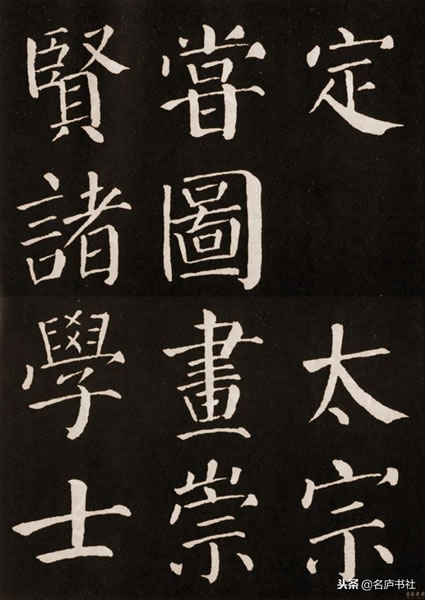 定 太宗
嘗圖畫崇
賢諸學士
头条@名庐书社